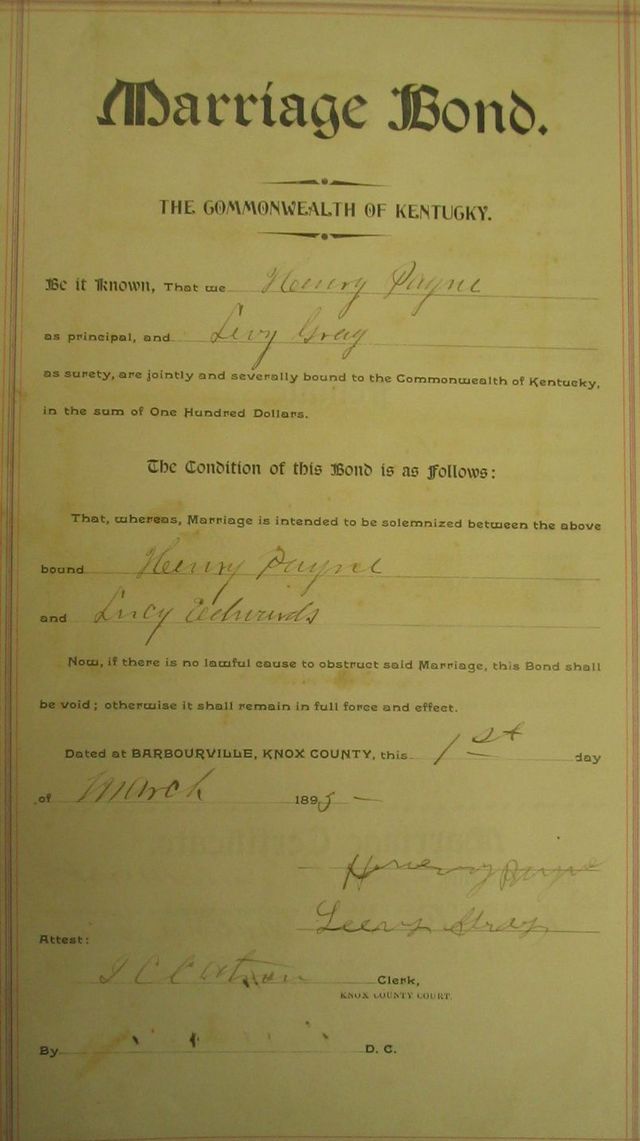 Marriage Bond.
THE COMMONWEALTH OF KENTUCKY.
Be it Known, That we Henry Payne
as principal, and Levy Gray
as surety, are jointly and severally bound to the Commonwealth of Kentucky,
in the sum of One Hundred Dollars.
The Condition of this Bond is as Follows:
That, whereas, Marriage is intended to be solemnized between the above
bound Henry Payne
and Lucy Edwards
Now, if there is no lawful cause to obstruct said Marriage, this Bond shall
be void; otherwise it shall remain in full force and effect.
Dated at BARBOURVILLE, KNOX COUNTY, this 1st day
of March 1895 —
Henry Payne
Leevy Gray
Attest:
Clerk,
KNOX COUNTY COURT.
By D. C.